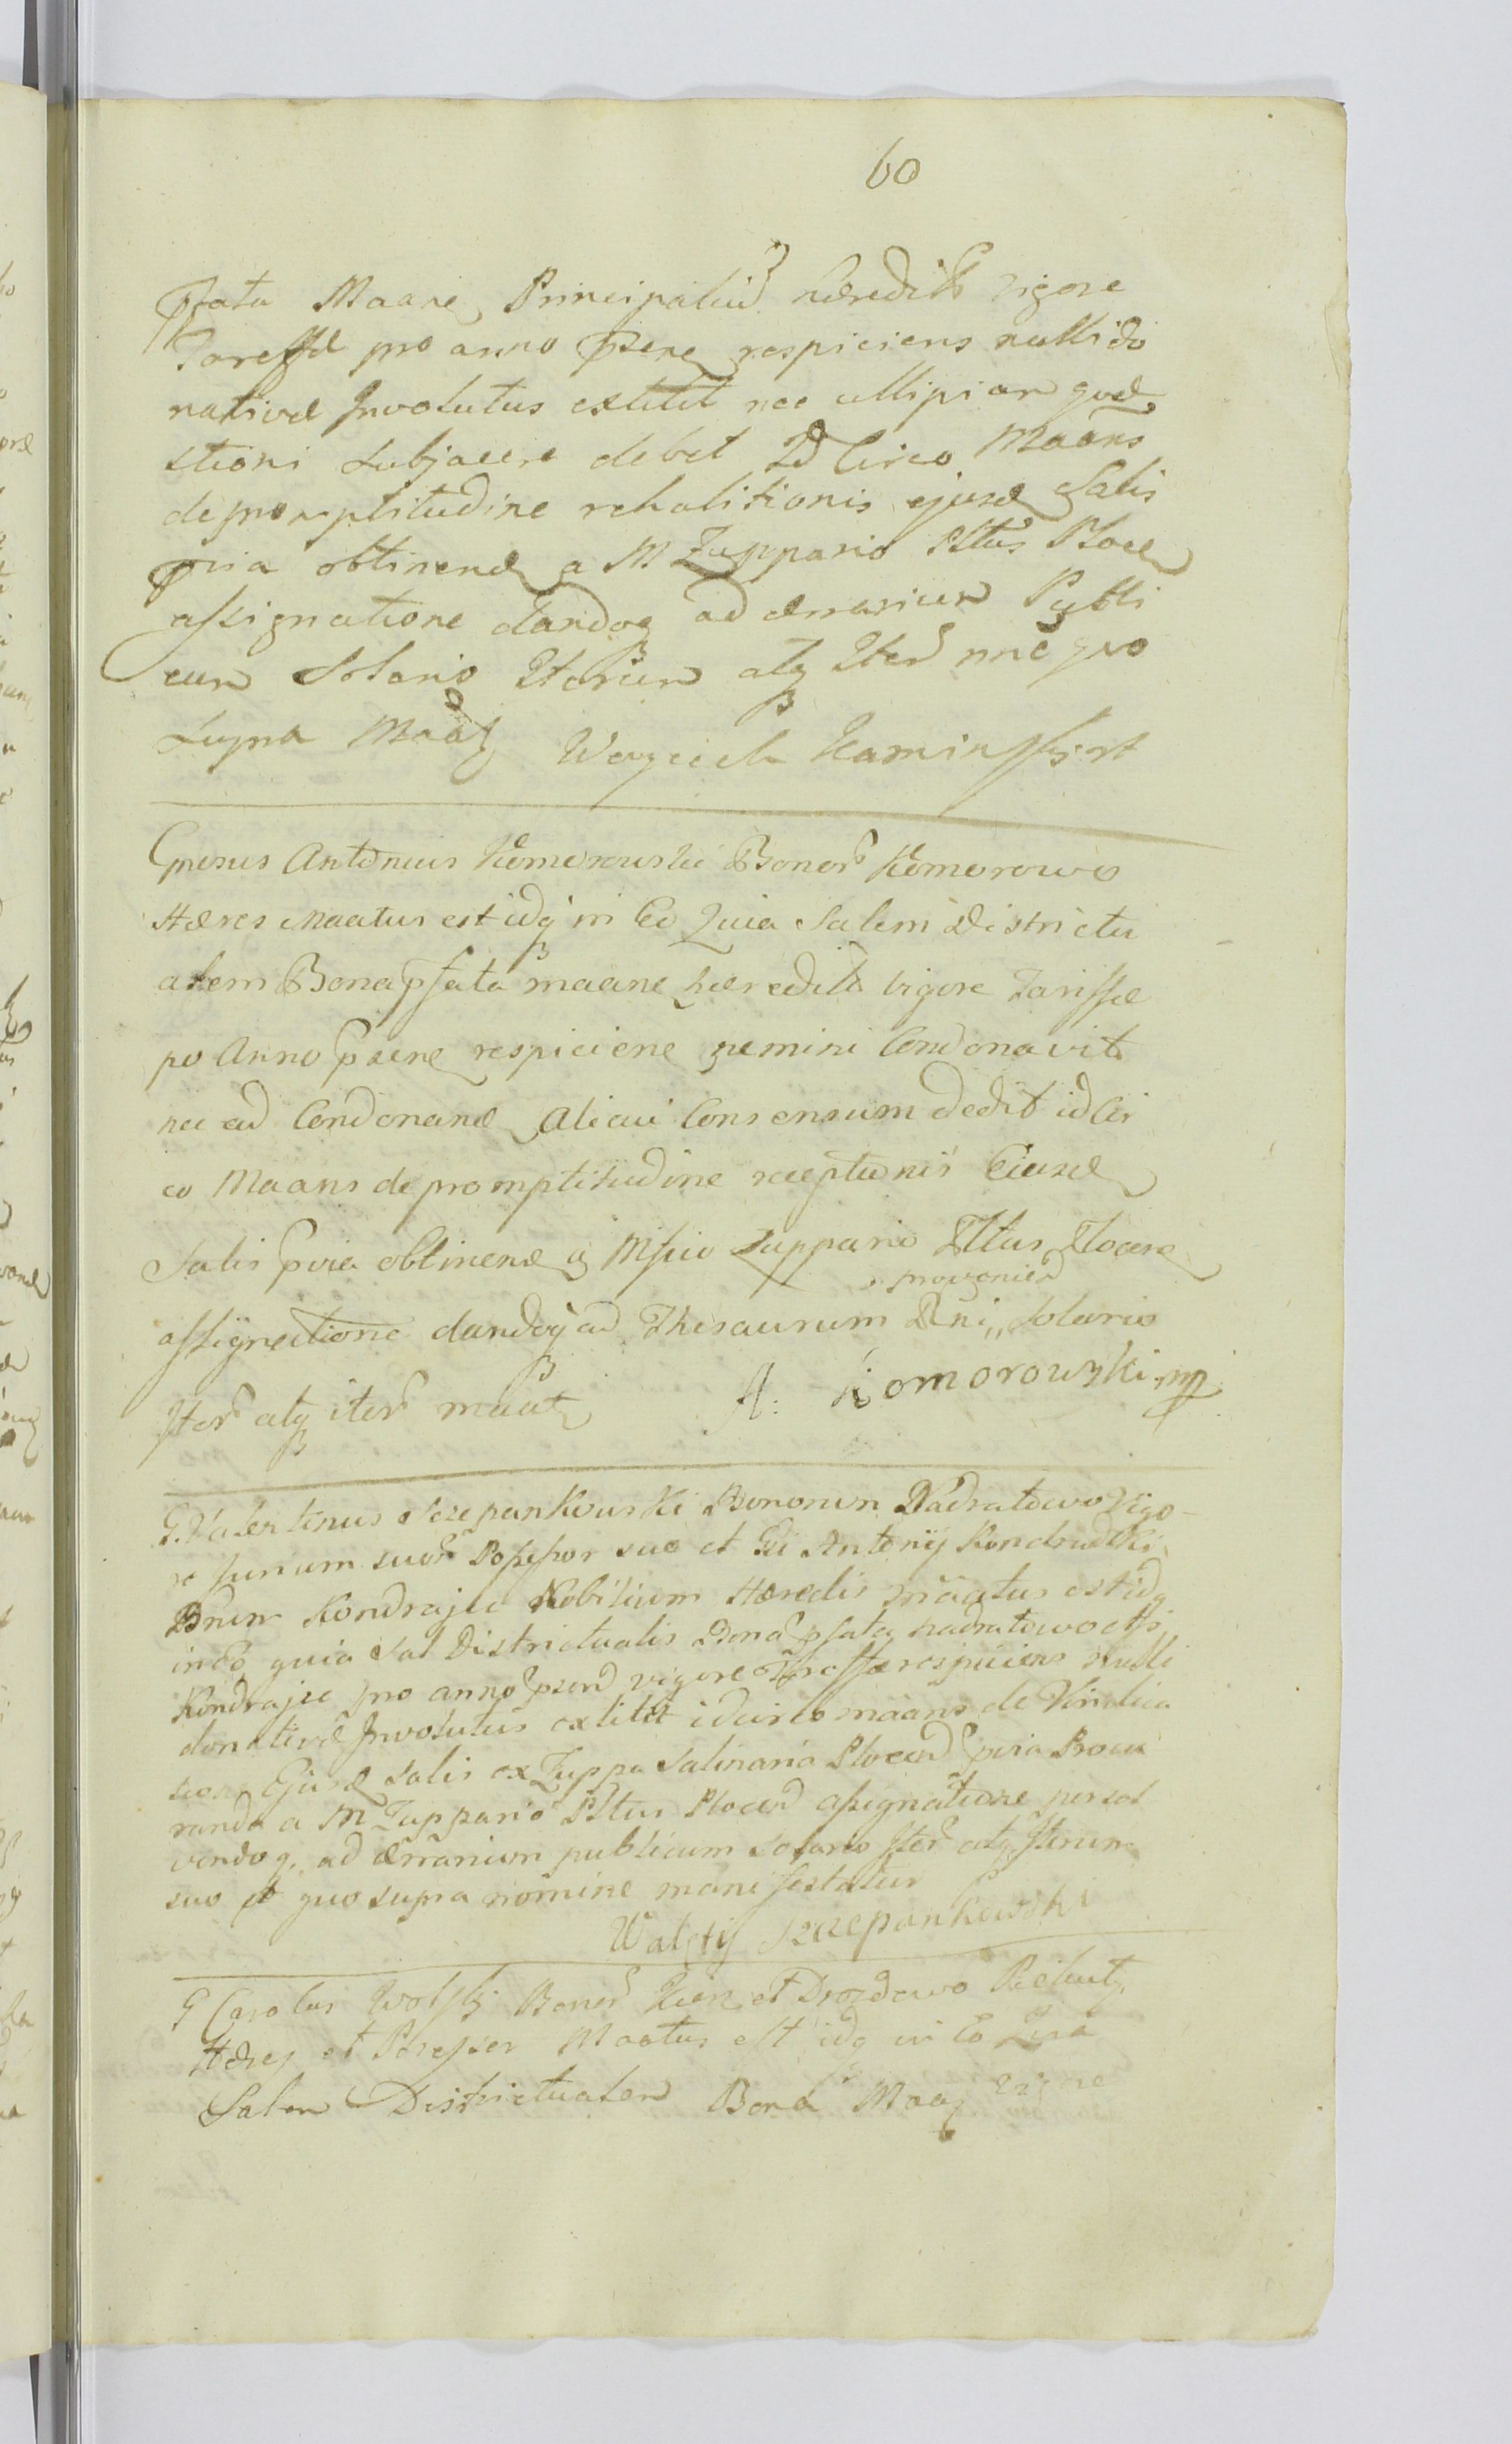 60
Pfata Maane Principaliũ hæredit vigore
Tareffæ pro anno Psene respiciens nulli do
nativæ Involutus extitit nec ullipiam quæ
stioni subjacere debet Id Circo Maans
de promptitudine rehabitionis ejusd Salis
pvia obtinend a M Zuppario Pltus Ploce
assignatione dandoq ad ærarium Publi
cum Solario Iterum atq Iter nne quo
supra Maat Woyciech Kaminsski mp
Gnrosus Antonius Komorowski Bonor Komorowo
Hæres Maatus est idq in Eo Quia Salem Districtu
alem Bona pfata maane hæredit vigore Tariffæ
po Anno psene respiciene nemini Condonavit
nec ad Condonand Alicui Consensum dedit id Cir
co Maans de promptitudine receptionis Eiusd
Salis pvia obtinend a Mfico Zuppario Pltus Ploce
provenien
assignatione dandoq ad Thesaurum Dni,, Solario
Iter atq iter maat A: Komorowski mp
G. Valentinus Szczepankowski Bonorum Nadratowo vigo-
re jurium suor Possessor suo et Gsi Antonij Kondradzki
Bnrum Kondrajec Nobilium Hæredis maatus est idq
in Eo quia Sal Districtualis Bona pfata Nadratowo et
Kondrajec pro anno psen vigore Tareffæ respiciens Nulli
donativæ Involutus extitit idcirco maans de Vindica
tione Ejusd Salis ex Zuppa Salinaria Plocen pvia Procu
randa a M Zuppario Pltus Plocen assignatione persol
vendoq, ad ærarium publicum solario Iter atq Iterum
suo et quo supra nomine manifestatur
Walęty Szczepankowski
G Carolus Wolski Bonor et Drozdowo
Hæres et Possesser Maatus est idq in Eo Quia
Salem Districtualem Bona Maa vigore